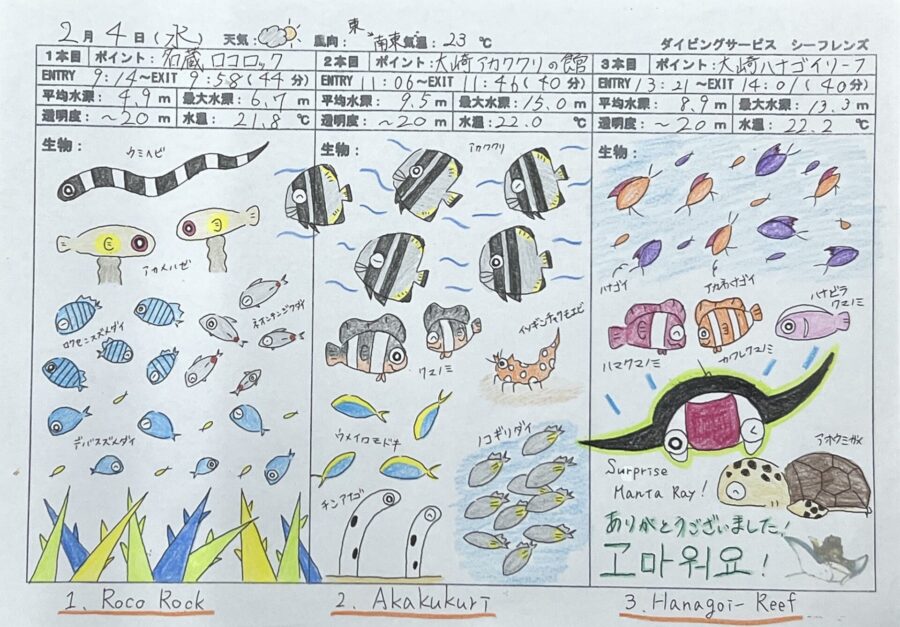 2月 4日(水) 天気: 風向: 東 南東 気温: 23 ℃
ダイビングサービス シーフレンズ
1本目 ポイント: 名蔵 ロコロック
ENTRY 9:14~EXIT 9:58(44分)
平均水深: 4.9 m 最大水深: 6.7 m
透明度: ~20 m 水温: 21.8 ℃
生物:
ウミヘビ
アカメハゼ
ロクセンスズメダイ
ネオンテンジクダイ
デバスズメダイ
1. Roco Rock
2本目 ポイント: 大崎アカククリの館
ENTRY 11:06~EXIT 11:46(40分)
平均水深: 9.5 m 最大水深: 15.0 m
透明度: ~20 m 水温: 22.0 ℃
生物:
アカククリ
クマノミ
イソギンチャクモエビ
ウメイロモドキ
ノコギリダイ
チンアナゴ
2. Akakukuri
3本目 ポイント: 大崎ハナゴイリーフ
ENTRY 13:21~EXIT 14:01(40分)
平均水深: 8.9 m 最大水深: 13.3 m
透明度: ~20 m 水温: 22.2 ℃
生物:
ハナゴイ
アカネハナゴイ
ハナビラ
クマノミ
ハマクマノミ
カクレクマノミ
Surprise
Manta Ray!
アオウミガメ
ありがとうございました!
고마워요!
3. Hanagoi-Reef